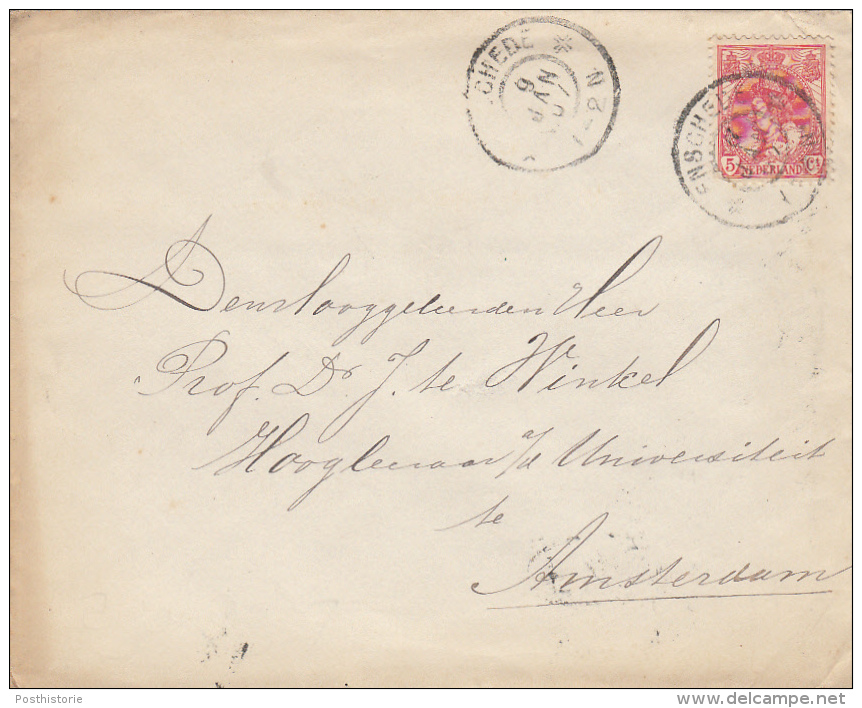 CHEDE * N
1-2
ENSCHEDE
5 Ct
NEDERLAND
Den Hooggeleerden Heer
Prof. Dr. J. te Winkel
Hoogleeraar a/d Universiteit
te
Amsterdam
Posthistorie
delcampe.net